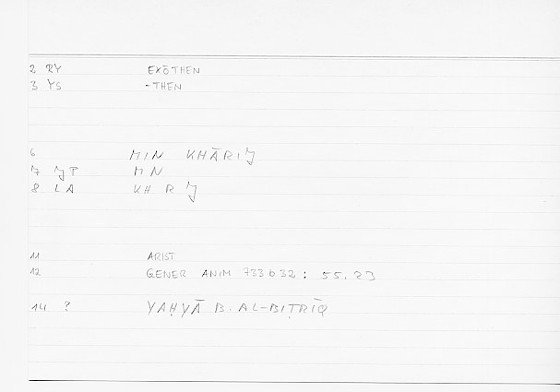 2 RY EXŌTHEN
3 YS -THEN
6 MIN KHĀRIJ
7 JT MN
8 LA KH R J
11 ARIST
12 GENER ANIM 733b32 : 55,23
14 ? YAḤYĀ B. AL-BIṬRĪQ